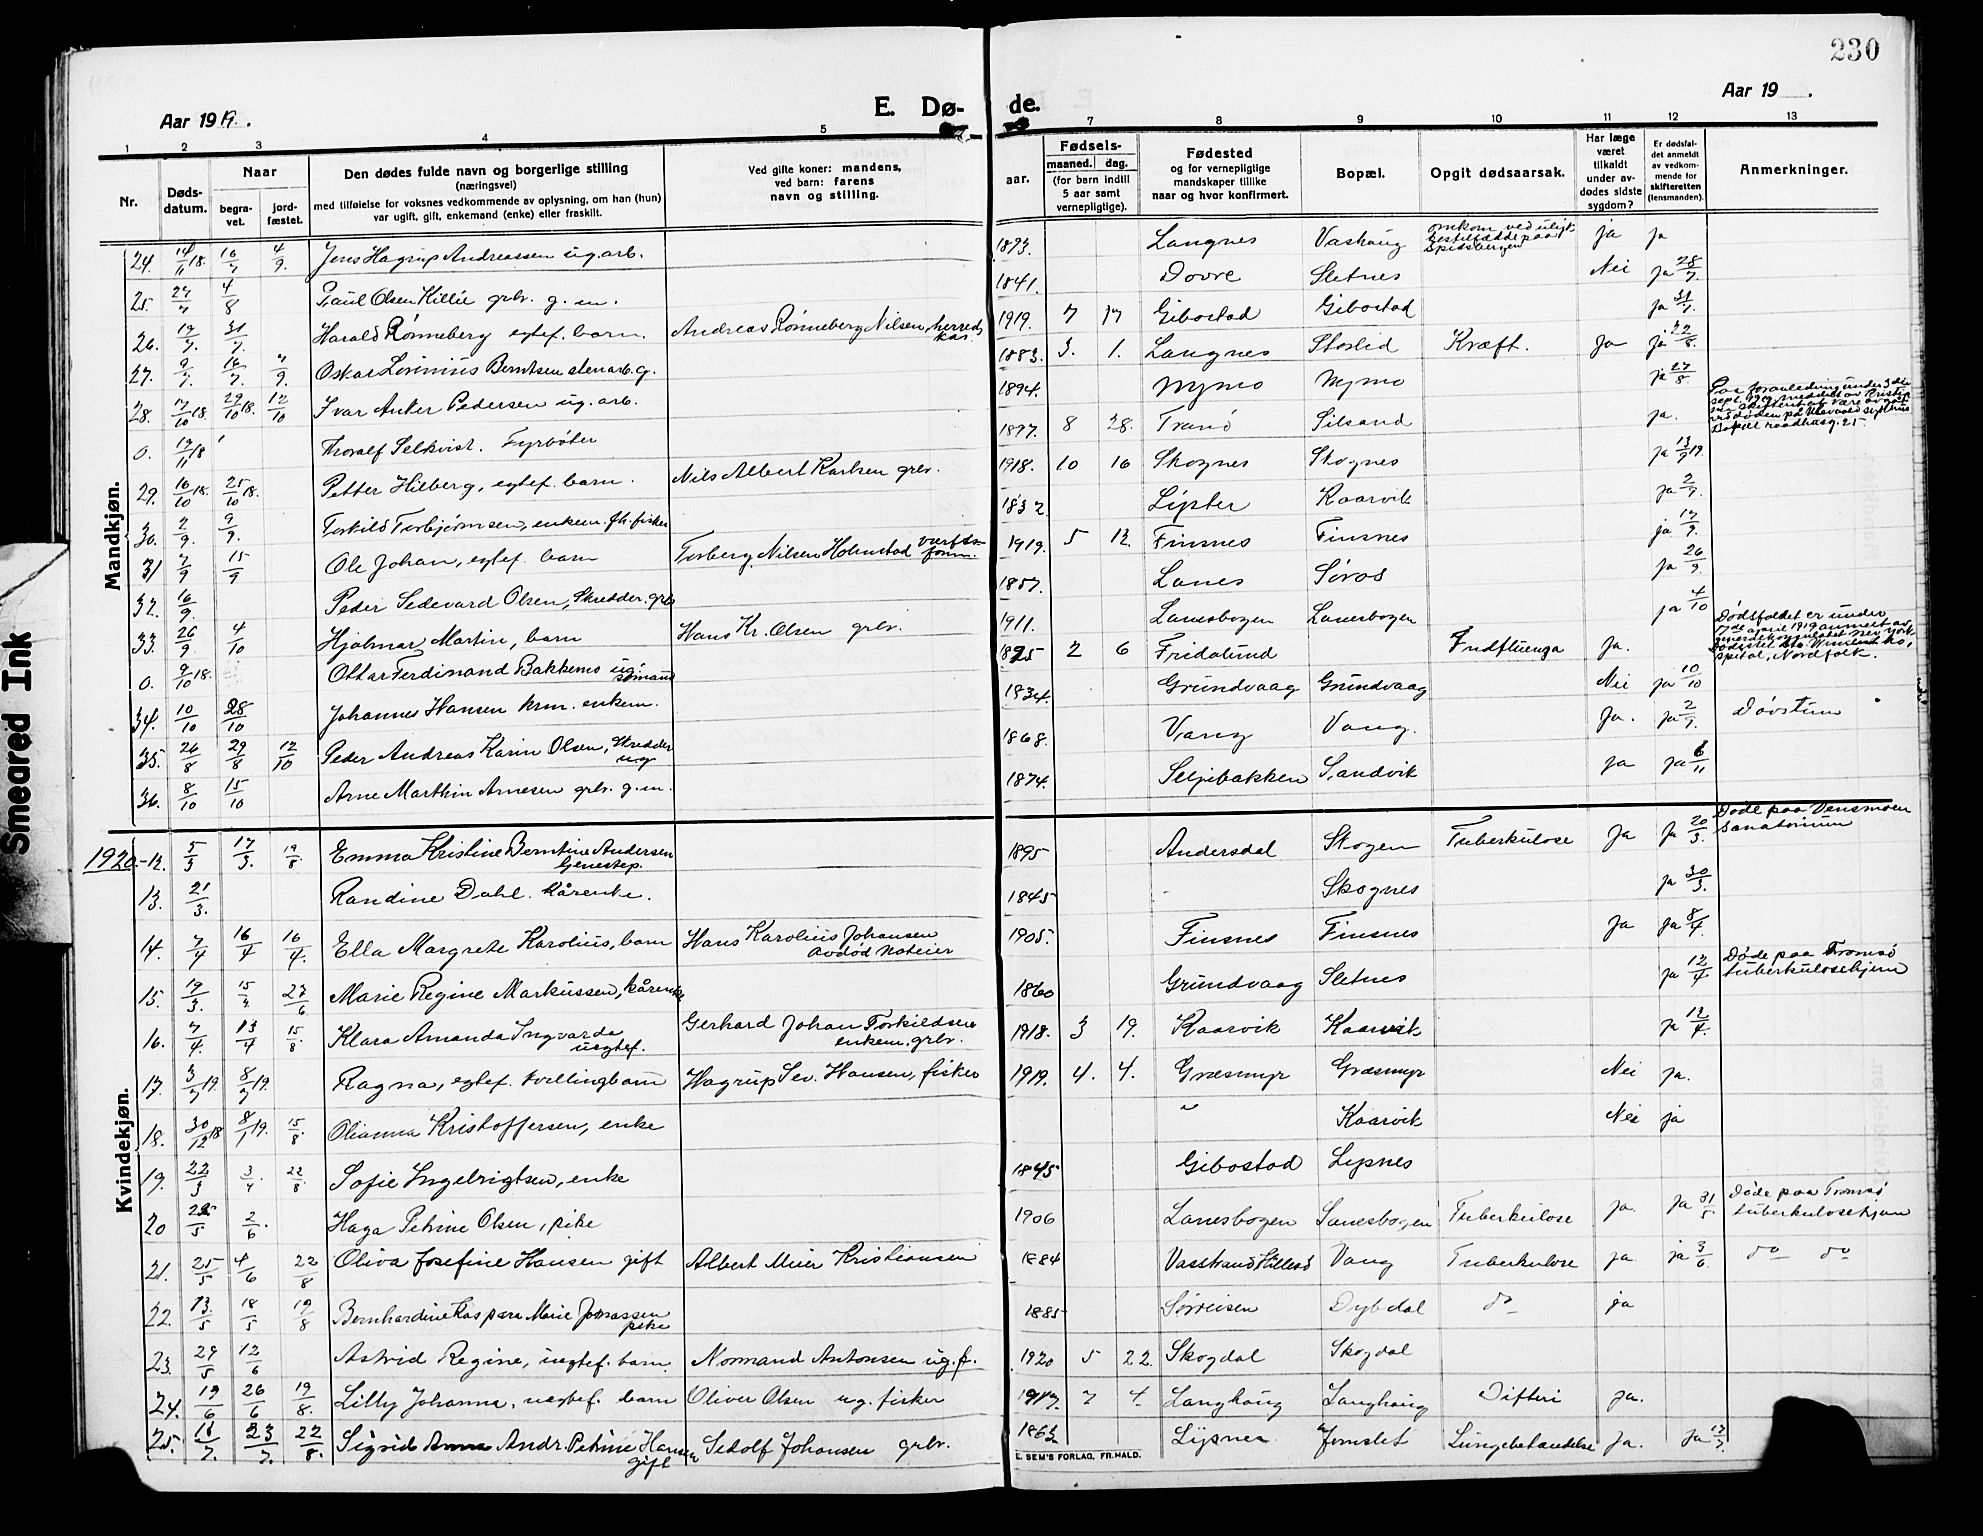 230
Aar 1919.
E. Dø-
de.
Aar 19 .
1 2 3 4 5
7 8 9 10 11 12 13
Nr.
Døds-
datum.
Naar
begra-
vet.
jord-
fæstet.
Den dødes fulde navn og borgerlige stilling
(næringsvei)
med tilføielse for voksnes vedkommende av oplysning, om han (hun)
var ugift, gift, enkemand (enke) eller fraskilt.
Ved gifte koner: mandens,
ved barn: farens
navn og stilling.
aar.
Fødsels-
maaned. dag.
(for barn indtil
5 aar samt
vernepligtige).
Fødested
og for vernepligtige
mandskaper tillike
naar og hvor konfirmert.
Bopæl.
Opgit dødsaarsak.
Har læge
været
tilkaldt
under av-
dødes sidste
sygdom?
Er dødsfal-
det anmeldt
av vedkom-
mende for
skifteretten
(lensmanden).
Anmerkninger.
Mandkjøn.
24. 14/11 18. 16/7 4/9. Jens Hagrup Andreassen ug. arb. 1893. Langnes Vashaug omkom ved ulykkestilfælde paa Spidsbergen ja ja
25. 27/7 4/8 Paul Olsen Killie grbr. g. m. 1841. Dovre Sletnes Nei ja 28/7.
26. 19/7. 31/7. Harald Rønneberg egtef. barn. Andreas Rønneberg Nilsen, herreds kas. 1919. 7 17 Gibostad Gibostad ja 31/7.
27. 9/7. 16/7. 7/9. Oskar Lorinius Berntsen stenarb. g. 1883. 3. 1. Langnes Storlid Kræft. Ja ja 22/8.
28. 17/10 18. 29/10 18. 12/10 Ivar Anker Pedersen ug. arb. 1894. Nymo Nymo ja 27/8.
0. 19/11 18 Thoralf Selkvist. Fyrbøter 1897. 8 28. Tranø Silsand ja.
29. 16/10 18. 25/10 18. Petter Hilberg, egtef. barn. Nils Albert Karlsen grbr. 1918. 10 16 Skognes Skognes ja 13/9 19.
30. 2/9. 9/9. Torkild Torbjørnsen, enkem. fh. fisker 1832. Lyster Kaarvik ja 2/7.
31 7/9 15/9 Ole Johan, egtef. barn Torberg Nilsen Holmstad værftsform. 1919. 5 12. Finsnes Finsnes ja 17/9.
32. 16/9. Peder Sedevard Olsen, Skredder. grbr 1857. Lanes Søros ja 26/9.
33. 26/9. 4/10 Hjalmar Martin, barn Hans Kr. Olsen grbr. 1911. Lanesbogen Lanesbogen ja 4/10
0. 9/10 18. Ottar Ferdinand Bakkemo ug. sømand 1895 2 6 Fridalund Indfluenza Ja. Dødsfaldet er under 7de april 1919 anmeldt av generalkonsulatet New York. Dødsstet St. Vincent hospital, Nordfolk.
34. 10/10 28/10 Johannes Hansen krm. enkem. 1834. Grundvaag Grundvaag Nei ja 10/10
35. 26/8 29/8 12/10 Peder Andreas Karin Olsen, Skredder ug 1868. Vang Vang. Ja. ja 2/7. Døvstum
36. 8/10 15/10 Arne Marthin Arnesen grbr. g. m. 1874. Seljebakken Sandvik ja ja 6/11
Kvindekjøn.
1920 - 12. 5/3 17/3. 19/8 Emma Kristine Berntine Andersen tjenestep. 1895 Andersdal Skogen Tuberkulose Ja Ja 20/3. Døde paa Vensmoen sanatorium
13. 21/3. Randine Dahl. kårenke. 1845 - Skognes ja 30/3.
14. 7/4 16/4 16/4. Ella Margrete Karolius, barn Hans Karolius Johansen avdød Noteier 1905. Finsnes Finsnes Ja ja 8/4.
15. 19/3. 15/4. 27/6 Marie Regine Markussen, kårenke 1860 Grundvaag Sletnes ja 12/4 Døde paa Tromsø tuberkulosehjem
16. 7/4. 13/4 15/8. Klara Amanda Ingvarda uegtef. Gerhard Johan Torkildsen enkem. grbr. 1918. 3 19. Kaarvik Kaarvik ja 12/4.
17. 3/7 19 8/7 19. Ragna, egtef. tvillingbarn Hagrup Sev. Hansen, fisker 1919. 4. 4. Græsmyr Græsmyr Nei ja.
18. 30/12 18 8/1 19. 15/8 Olianna Kristoffersen, enke Kaarvik Nei ja
19. 22/3 3/4 22/8 Sofie Ingebrigtsen, enke 1845 Gibostad Lysnes
20 22/5 2/6. Haga Petrine Olsen, pike 1906 Lanesbogen Lanesbogen Tuberkulose ja. ja 31/5 Døde paa Tromsø tuberkulosehjem
21. 25/5 4/6 22/8 Oliva Josefine Hansen gift Albert Meier Kristiansen 1884 Vasstrand Hillesø Vang Tuberkulose ja ja 3/6. do do
22. 13/5 18/5 19/8 Bernhardine Kaspara Marie Jonassen pike 1885 Sørreisen Dybdal do ja
23. 29/5 12/6 Astrid Regine, uegtef. barn. Normand Antonsen ug. f. 1920 5 22. Skogdal Skogdal
24. 19/6 26/6 19/8. Lilly Johanna, uegtef. barn Oliver Olsen ug. fisker 1917. 7 4 Langhaug Langhaug Difteri ja.
25. 18/7. 23/7. 22/8. Sigrid Anna Andr. Petrine Hansen gift Sedolf Johansen grbr. 1863 Lysnes Jomslet Lungebetændelse Ja. Ja 17/7.
E. SEM'S FORLAG, FR.HALD.
Smeared Ink